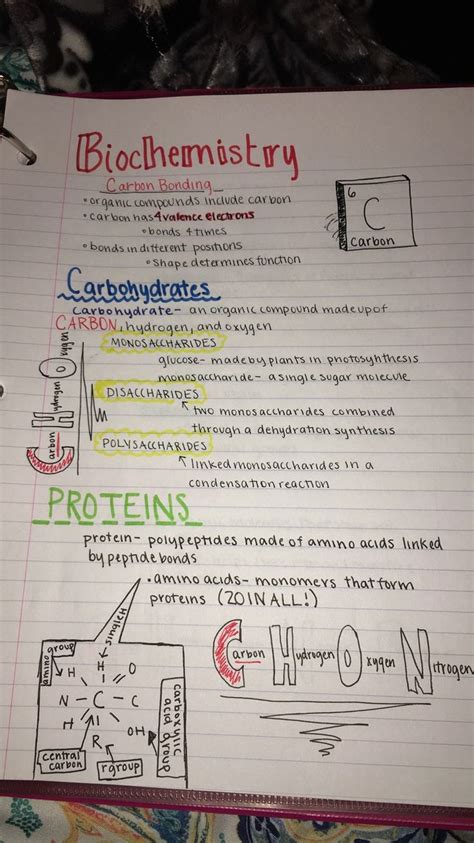 Biochemistry
Carbon Bonding
•organic compounds include carbon
•carbon has 4 valence electrons
•bonds 4 times
•bonds in different positions
•Shape determines function
6
C
Carbon
Carbohydrates
Carbohydrate- an organic compound made up of
CARBON, hydrogen, and oxygen
MONOSACCHARIDES
glucose- made by plants in photosyhthesis
monosaccharide- a single sugar molecule
DISACCHARIDES
two monosaccharides combined
through a dehydration synthesis
POLYSACCHARIDES
linked monosaccharides in a
condensation reaction
Carbon Hydrogen Oxygen
PROTEINS
protein- polypeptides made of amino acids linked
by peptide bonds
•amino acids- monomers that form
proteins (20 IN ALL!)
Carbon Hydrogen Oxygen Nitrogen
single H
amino group
H H O
N - C - C
H OH
R
central carbon
r group
carboxylic acid group